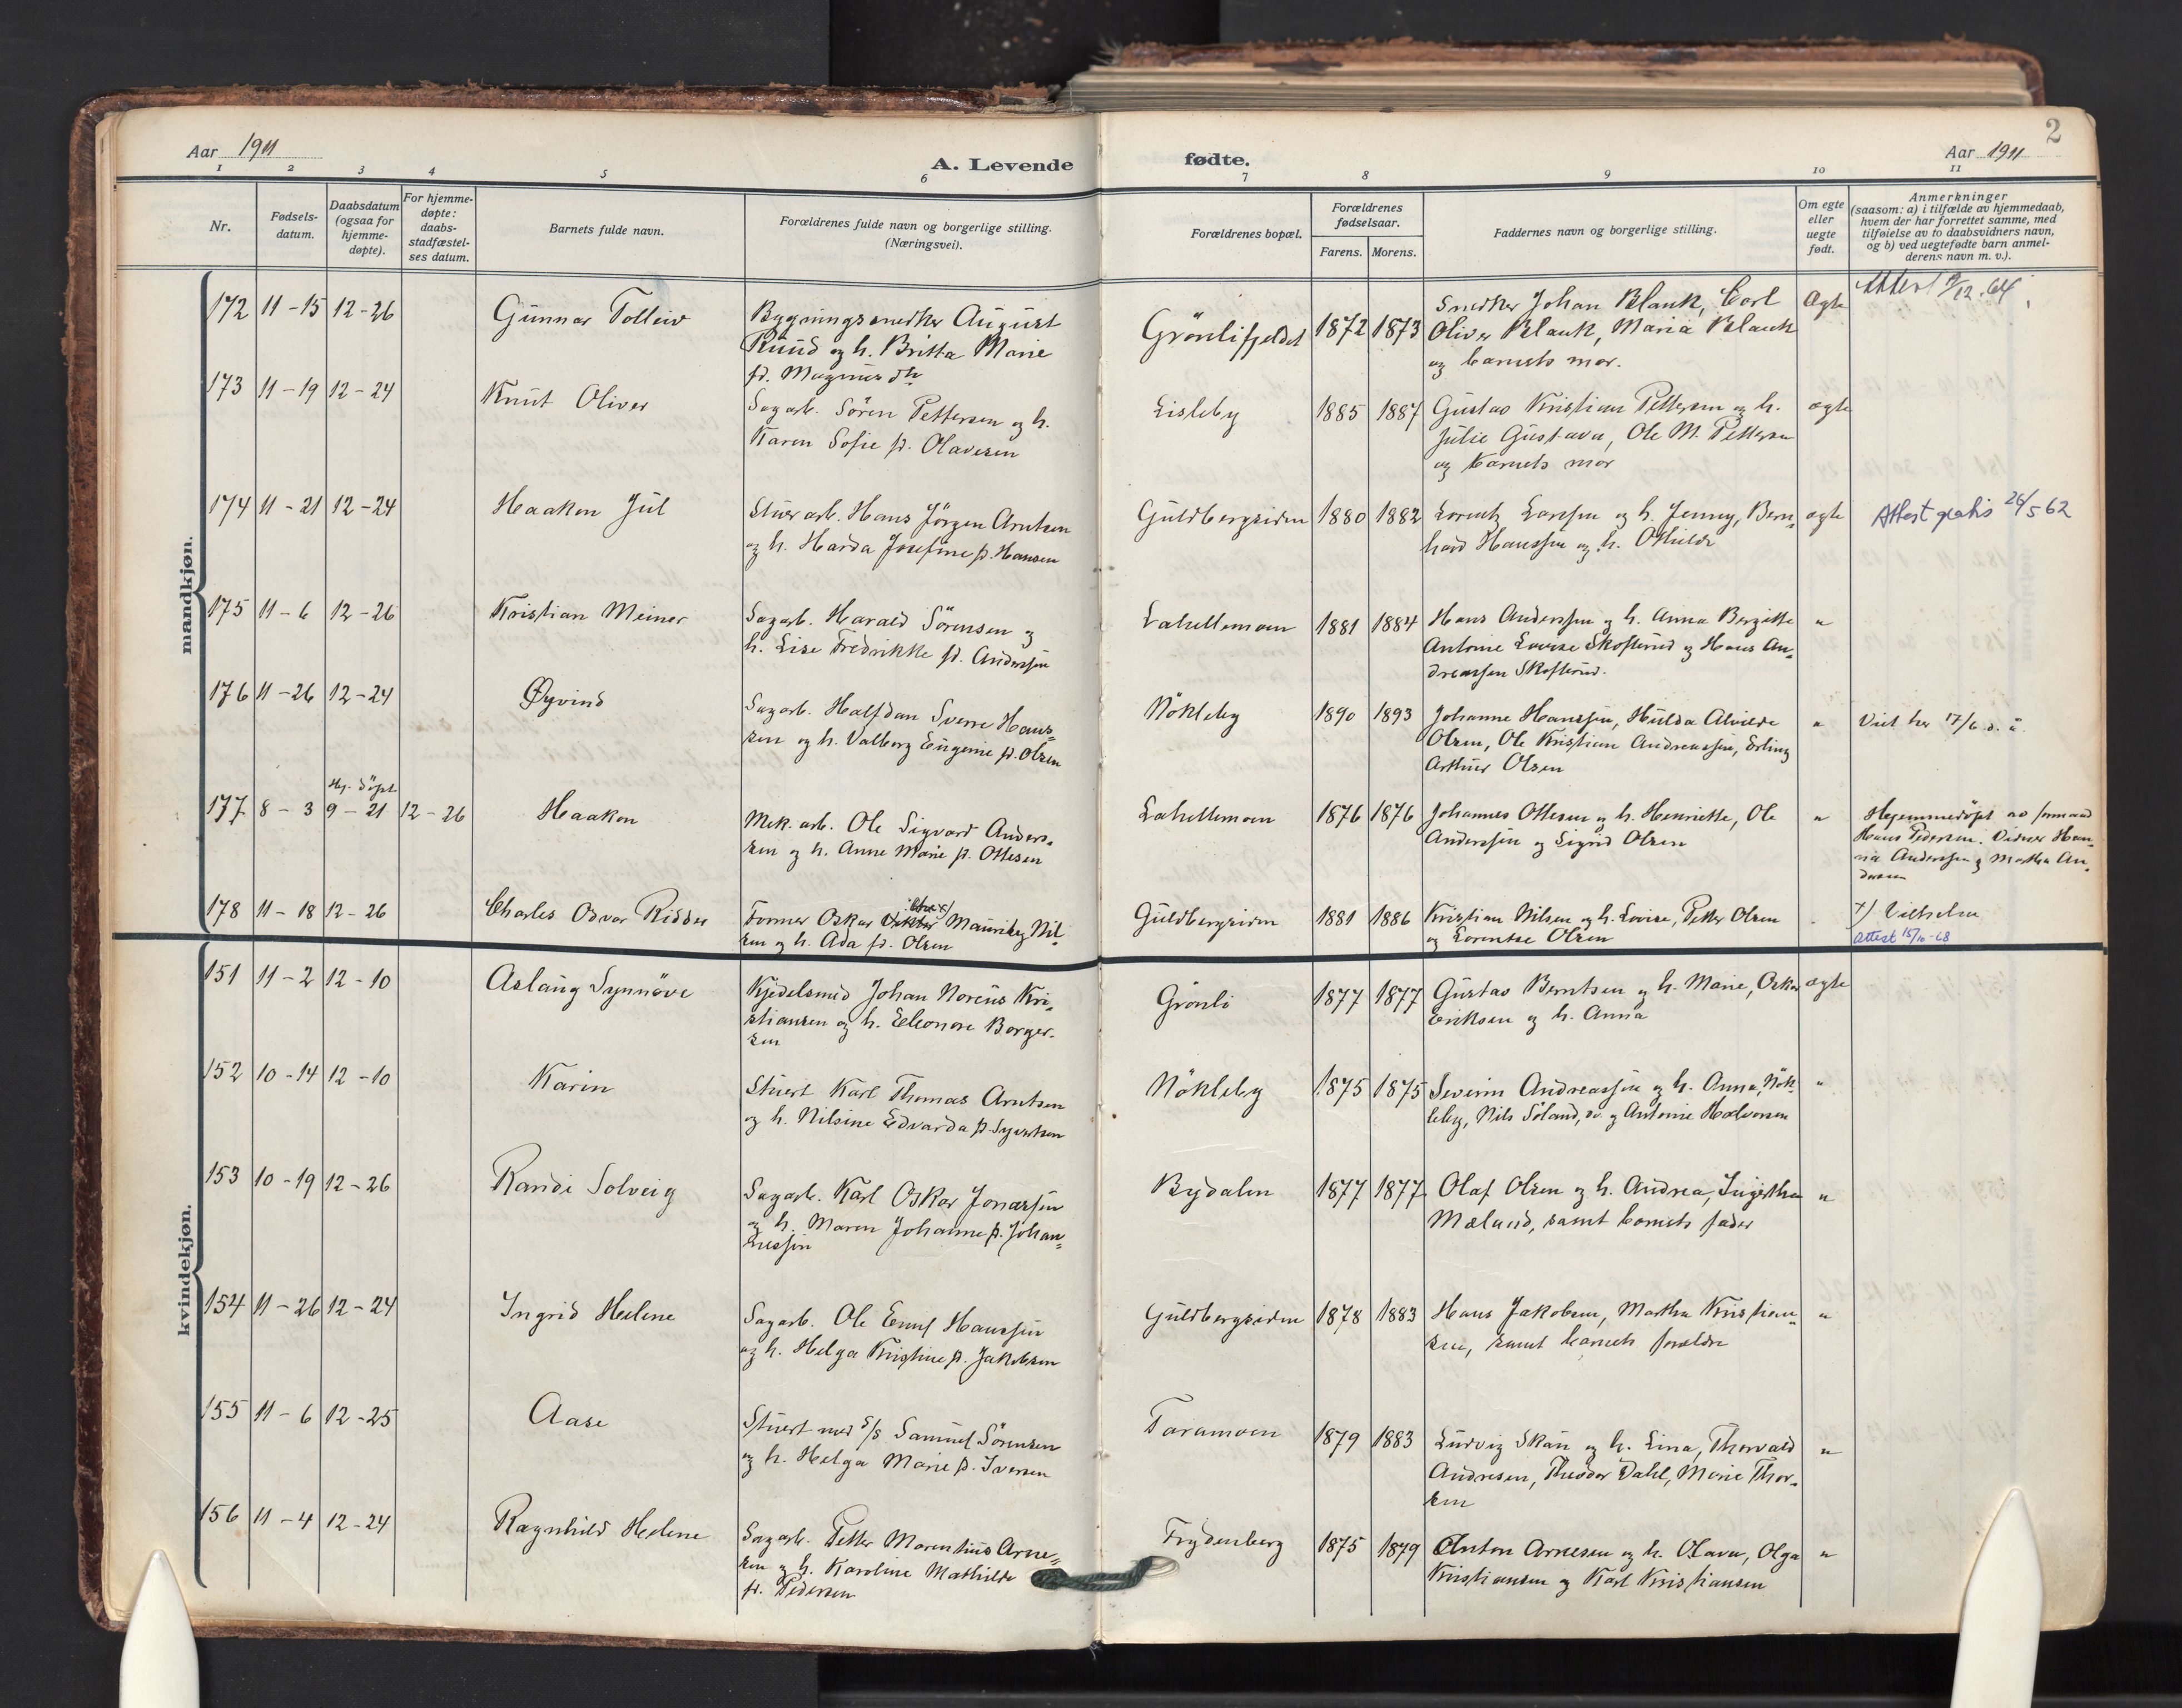 Aar 1911
A. Levende
fødte.
2
Aar 1911
1 2 3 4 5 6 7 8 9 10 11
Nr.
Fødsels-
datum.
Daabsdatum
(ogsaa for
hjemme-
døpte).
For hjemme-
døpte:
daabs-
stadfæstel-
ses datum.
Barnets fulde navn.
Forældrenes fulde navn og borgerlige stilling.
(Næringsvei).
Forældrenes bopæl.
Forældrenes
fødselsaar.
Farens. Morens.
Faddernes navn og borgerlige stilling.
Om egte
eller
uegte
født.
Anmerkninger
(saasom: a) i tilfælde av hjemmedaab,
hvem der har forrettet samme, med
tilføielse av to daabsvidners navn,
og b) ved uegtefødte barn anmel-
derens navn m. v.).
mandkjøn.
172 11-15 12-26
Gunnar Tolleiv
Bygningssnedker August
Ruud og h. Britta Marie
f. Magnusdtr
Grönlifjeldet
1872 1873
Snedker Johan Blank, Carl
Oliver Blank, Maria Blank
og barnets mor.
Ægte
Attest 9/12.64
173 11-19 12-24
Knut Oliver
Sagarb. Sören Pettersen og h.
Karen Sofie f. Olavesen
Lisleby
1885 1887
Gustav Kristian Pettersen og h.
Julie Gustava, Ole M. Pettersen
og barnets mor
ægte
174 11-21 12-24
Haakon Jul
Stuerarb. Hans Jörgen Arntsen
og h. Harda Josefine f. Hansen
Guldbergsiden
1880 1882
Lorentz Larssen og h. Jenny, Bern=
hard Hanssen og h. Othilde
ægte
Attest gratis 26/5 62
175 11-6 12-26
Kristian Meiner
Sagarb. Harald Sörensen og
h. Lise Fredrikke f. Anderssen
Lahellemoen
1881 1884
Hans Anderssen og h. Anna Bergitte
Antonie Lovise Skofterud og Hans An=
dreassen Skofterud.
"
176 11-26 12-24
Øyvind
Sagarb. Halfdan Sverre Hans=
sen og h. Valborg Eugenie f. Olsen
Nökleby
1890 1893
Johanne Hanssen, Hulda Alvilde
Olsen, Ole Kristian Andreassen, Erling
Arthur Olsen
"
Viet her 17/6 s. å.
Hj. döpt
177 8-3 9-21 12-26
Haakon
Mek. arb. Ole Sigvard Anders=
sen og h. Anne Marie f. Ottesen
Lahellemoen
1876 1876
Johannes Ottesen og h. Henriette, Ole
Anderssen og Sigrid Olsen
"
Hjemmedöpt av formand
Hans Pedersen. Vidner Han=
na Anderssen og Martha An=
dersen
178 11-18 12-26
Charles Osvar Ridder
Former Oskar Viktor Mauritz Nil=
sen og h. Ada f. Olsen
Guldbergsiden
1881 1886
Kristian Nilsen og h. Lovise, Petter Olsen
og Lorentse Olsen
x) Vilhelm
attest 15/10-68
kvindekjøn.
151 11-2 12-10
Aslaug Synnöve
Kjedelsmed Johan Noreus Kri=
stiansen og h. Eleonore Borger=
sen
Grönli
1877 1877
Gustav Berntsen og h. Marie, Oskar
Eriksen og h. Anna
ægte
152 10-14 12-10
Karin
Stuert Karl Thomas Arntsen
og h. Nilsine Edvarda f. Syvertsen
Nökleby
1875 1875
Severin Andreassen og h. Anna, Nök=
leby, Nils Söland, og Antonie Halvorsen
"
153 10-19 12-26
Randi Solveig
Sagarb. Karl Oskar Jonassen
og h. Maren Johanne f. Johan=
nessen
Bydalen
1877 1877
Olaf Olsen og h. Andrea, Ingerthea
Mæland, samt barnets fader
"
154 11-26 12-24
Ingrid Helene
Sagarb. Ole Emil Hanssen
og h. Helga Kristine f. Jakobsen
Guldbergsiden
1878 1883
Hans Jakobsen, Martha Kristian=
sen, samt barnets forældre
"
155 11-6 12-25
Aase
Stuert med S/S Samuel Sörensen
og h. Helga Marie f. Iversen
Taramoen
1879 1883
Ludvig Skau og h. Lina, Thorvald
Andresen, Theodor Dahl, Marie Thor=
sen
"
156 11-4 12-24
Ragnhild Helene
Sagarb. Petter Marentius Arne=
sen og h. Karoline Mathilde
f. Pedersen
Frydenberg
1875 1879
Anton Arnesen og h. Olava, Olga
Kristiansen og Karl Kristiansen
"